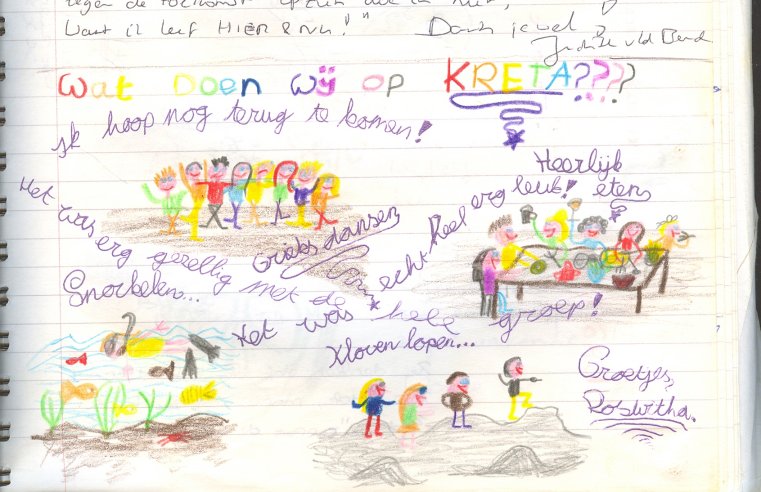 tegen de toekomst
Want ik leef HIER & NU!"
Dank je wel
Wat Doen wij op KRETA????
Ik hoop nog terug te komen!
Het was erg gezellig met de hele groep!
Grieks dansen
Het was echt heel erg leuk!
Heerlijk eten
Snorkelen...
Kloven lopen...
Groetjes,
Roswitha.